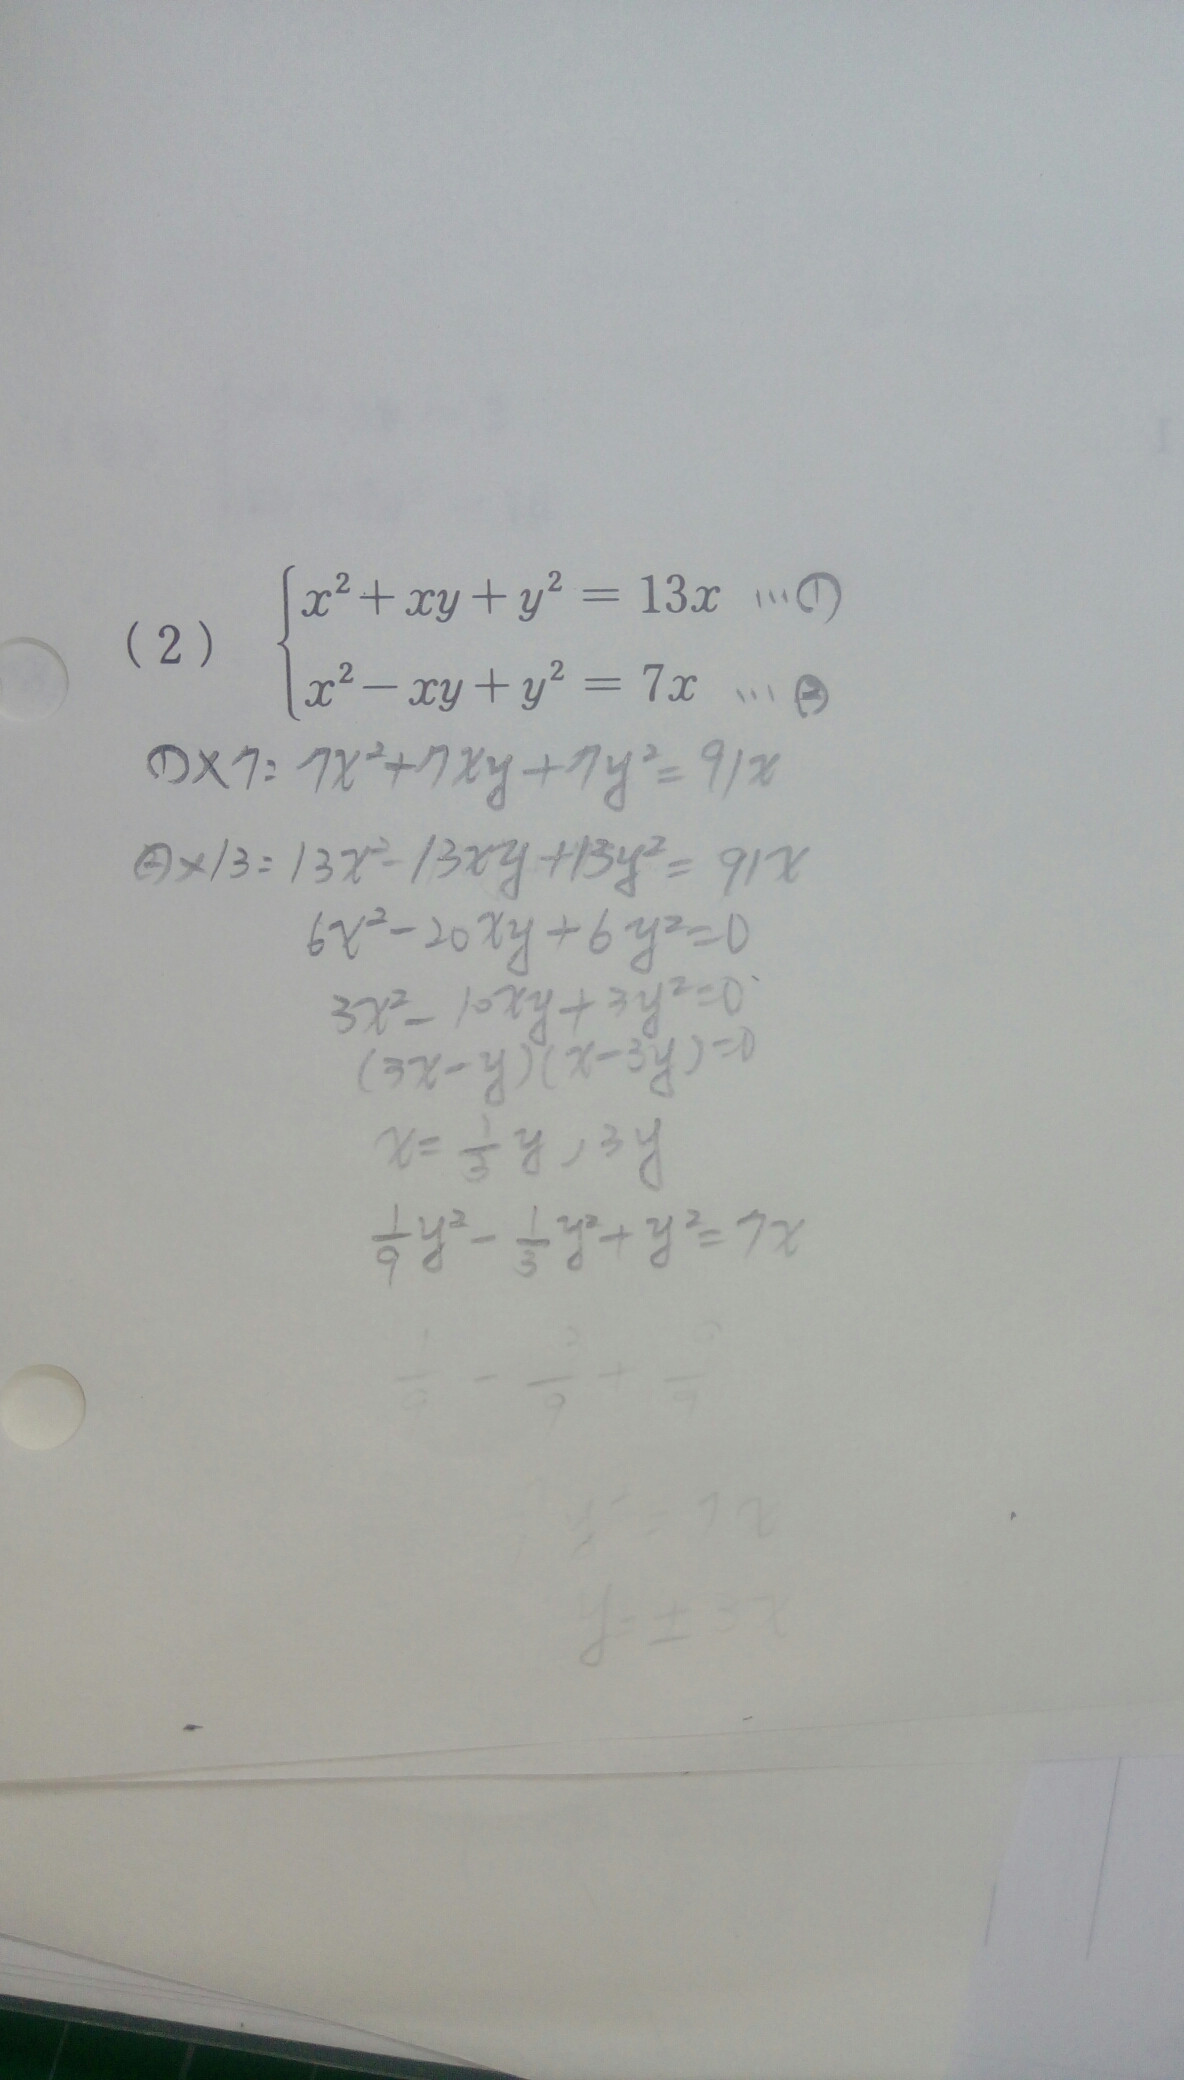 (2) { x² + xy + y² = 13x …①
x² − xy + y² = 7x …②
①×7: 7x²+7xy+7y²=91x
②×13=13x²-13xy+13y²=91x
6x²-20xy+6y²=0
3x²-10xy+3y²=0
(3x-y)(x-3y)=0
x=1/3 y, 3y
1/9 y² - 1/3 y² + y² = 7x
1/9 - 3/9 + 9/9
= 7x
y=±3x